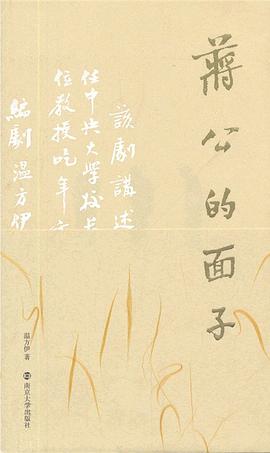 蔣公的面子
該劇講述
任中央大學校長
位教授吃年
編劇溫方伊
温方伊 著
南京大学出版社